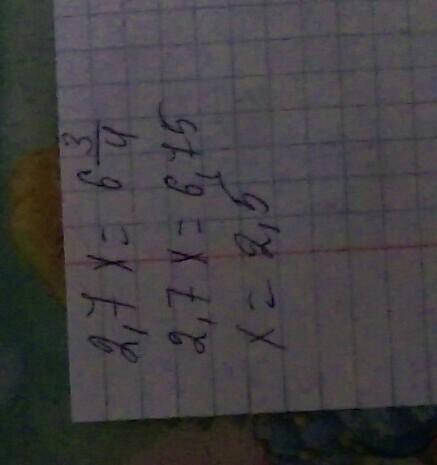 2,7 x = 6 3/4
2,7 x = 6,75
x = 2,5